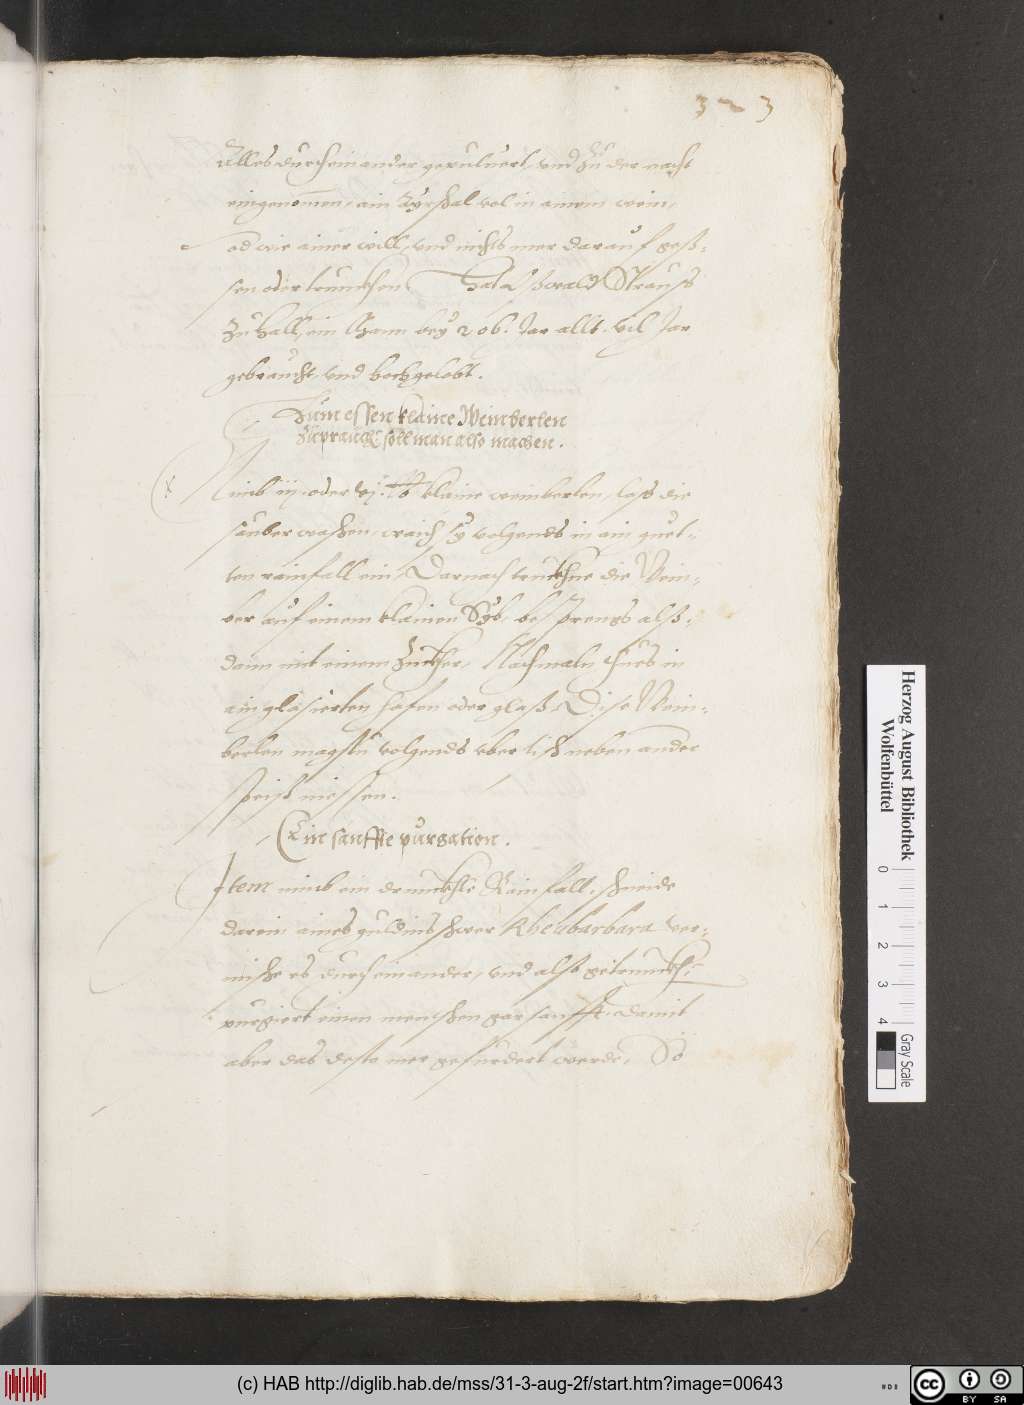 323
Alles durcheinander gepuluert, vnd zu der nacht
eingenomen, ain Ayrschal vol in ainem wein,
od wie ainer will, vnd nichts mer darauf gess-
sen oder trunckhen hat Oßwald Strauss
zu Hall, ein Mann bey 206. Jar allt. vil Jar
gebraucht, vnd hochgelobt.
Zum essen klaine Weinberlen
zuprauch soll man also machen.
Nimb iij. oder vj. lb klaine weinberlen, lass die
sauber waschen, waich sy volgends in ain guet-
ten rainfall ein, Darnach truckhne die Wein-
ber auf einem klainen Syb, besprengs alß-
dann mit einem Zuckher, Nachmaln thues in
ain glasierten hafen oder glaß, Dise Wein-
berlen magstu volgends vber tisch neben ander
speiss niessen.
Ein sanffte purgation.
Item nimb ein drunckhle Rainfall, schneide
darein aines guldins schwer Rheubarbara ver-
mische es durcheinander, vnd also getrunckh:
purgiert einen menschen gar sanfft. damit
aber das desto mer gefurdert werde, So
Herzog August Bibliothek
Wolfenbüttel
0 1 2 3 4
Gray Scale
(c) HAB http://diglib.hab.de/mss/31-3-aug-2f/start.htm?image=00643
cc BY SA